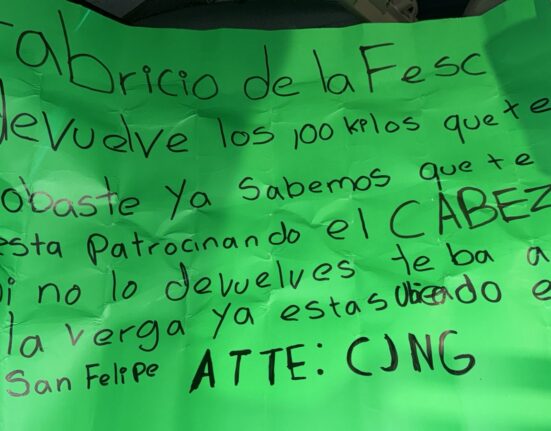 Fabricio de la Fesc
devuelve los 100 kilos que te
obaste Ya Sabemos que te
esta Patrocinando el CABEZ
i no lo devuelves te ba a
la verga Ya estas Ubicado e
San Felipe ATTE: CJNG